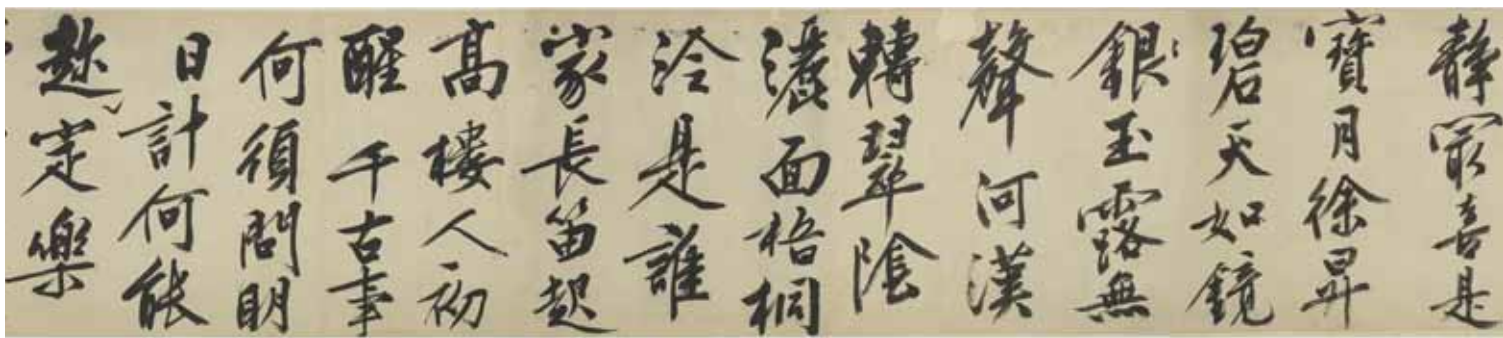 靜最喜是
寶月徐昇
碧天如鏡
銀玉露無
聲河漢
轉翠陰
灑面梧桐
泠是誰
家長笛起
高樓人初
醒千古事
何須問明
日計何能
趂定樂